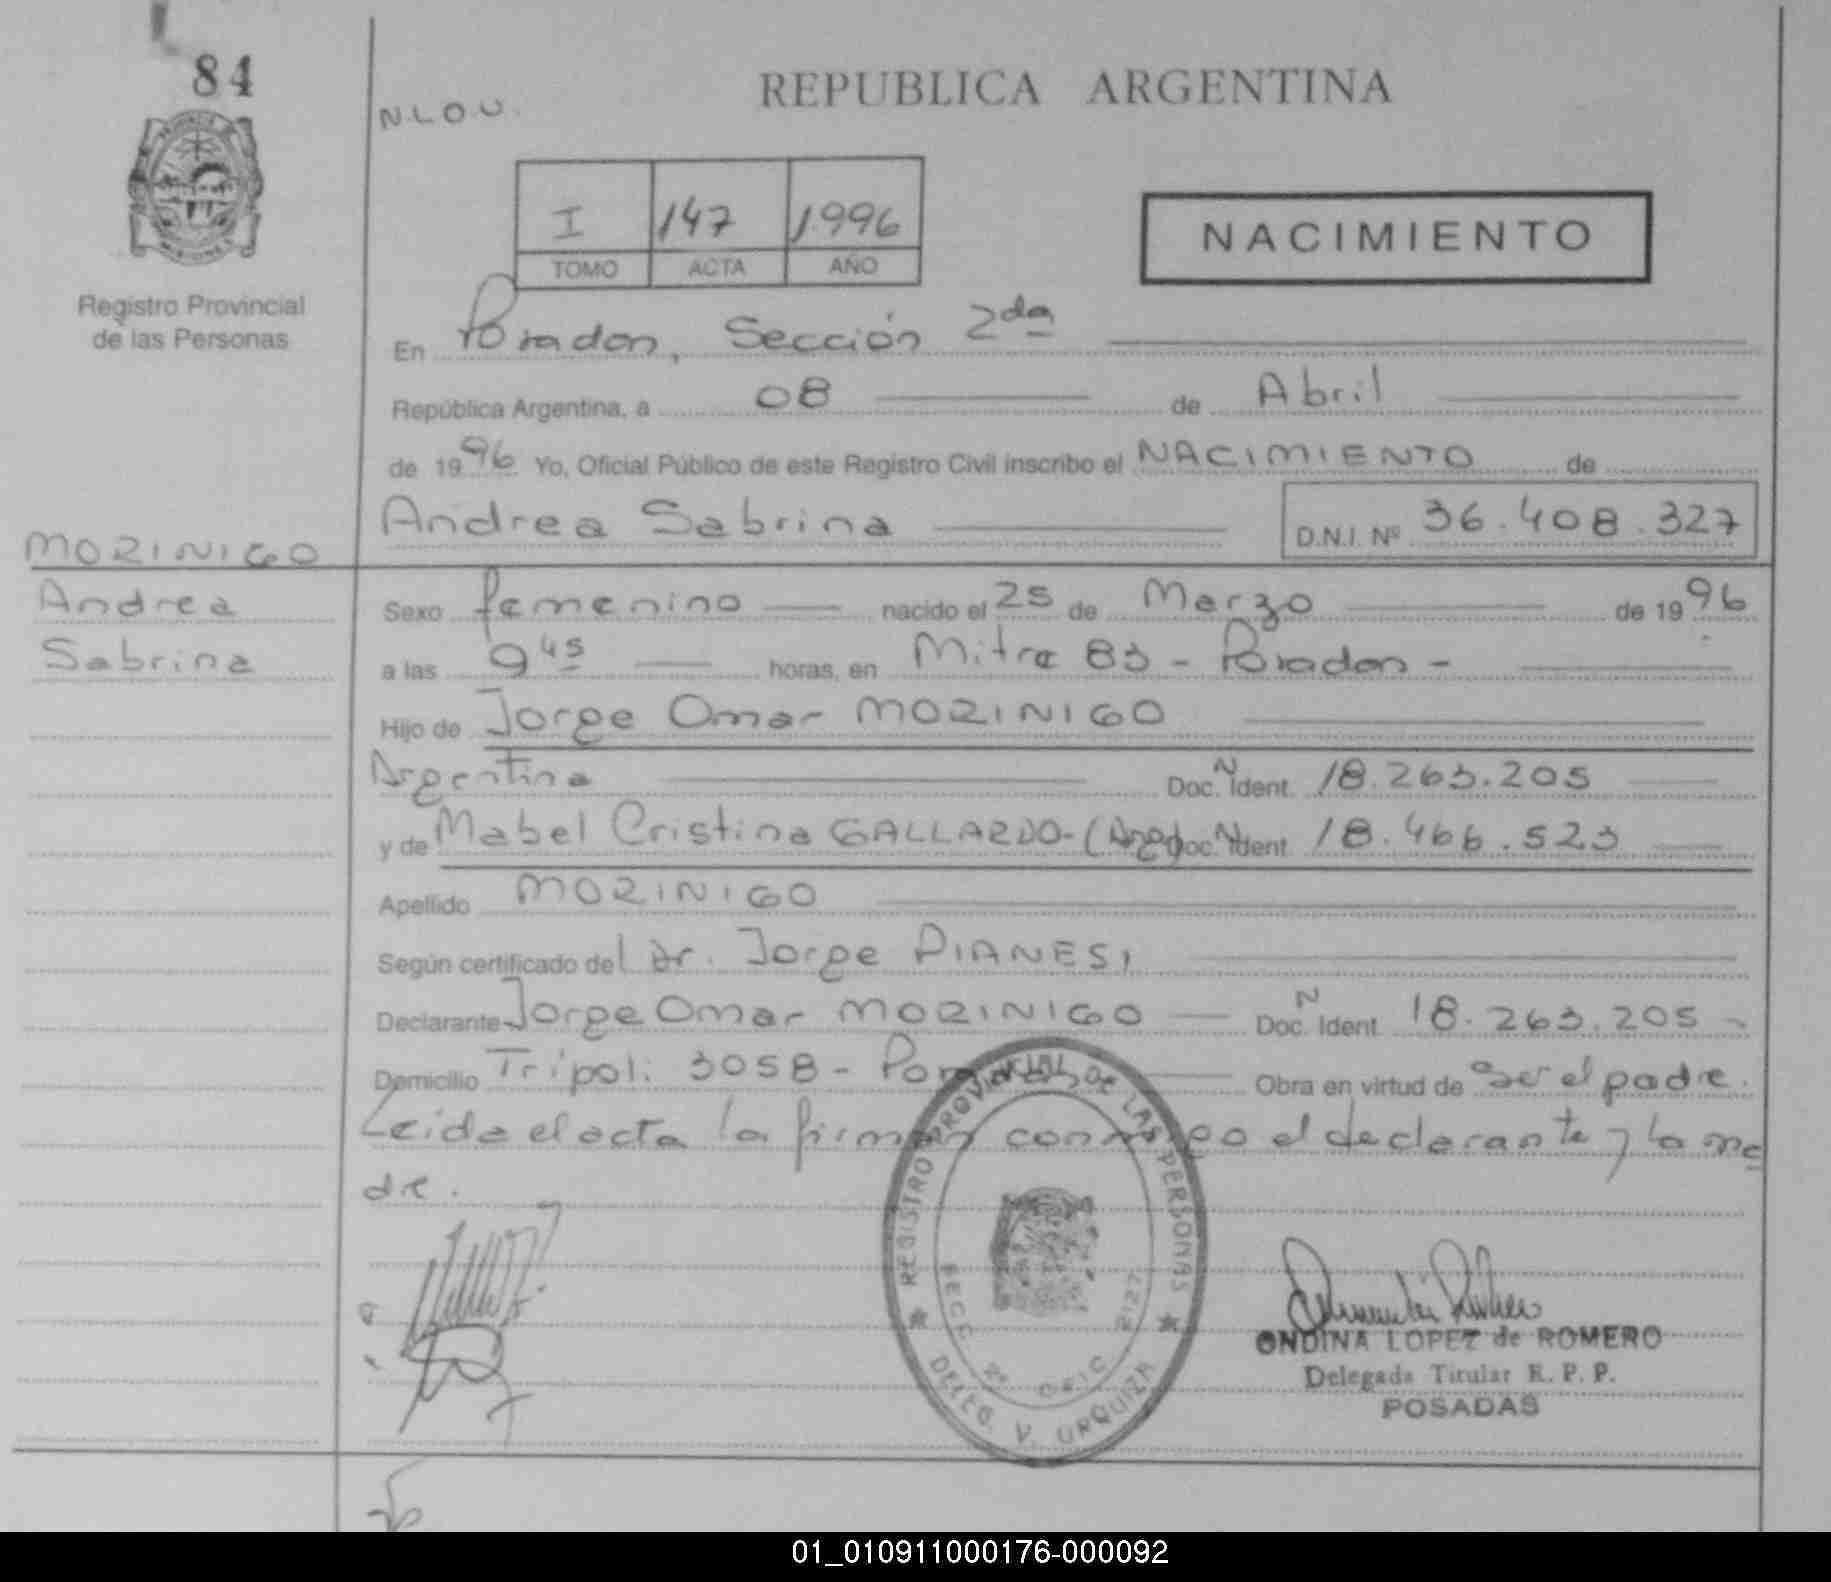 84
N.L.O.U.
REPUBLICA ARGENTINA
PROVINCIA DE MISIONES
Registro Provincial
de las Personas
I 147 1996
TOMO ACTA AÑO
NACIMIENTO
En Posadas, Sección 2da
República Argentina, a 08 de Abril
de 1996 Yo, Oficial Público de este Registro Civil inscribo el NACIMIENTO de
Andrea Sabrina D.N.I. Nº 36.408.327
MORINIGO
Andrea
Sabrina
Sexo femenino nacido el 25 de Marzo de 1996
a las 9 45 horas, en Mitre 83 - Posadas -
Hijo de Jorge Omar MORINIGO
Argentina Doc. N Ident. 18.263.205
y de Mabel Cristina GALLARDO - (Arg) Doc. N Ident 18.466.523
Apellido MORINIGO
Según certificado del Dr. Jorge PIANESI
Declarante Jorge Omar MORINIGO Doc. N Ident 18.263.205 -
Domicilio Trípoli 3058 - Posadas Obra en virtud de Ser el padre.
Leida el acta la firman conmigo el declarante y la ma
dre.
REGISTRO PROVINCIAL DE LAS PERSONAS
SECC 2º OFIC 2127
DELEG. V. URQUIZA
ONDINA LOPEZ de ROMERO
Delegada Titular R. P. P.
POSADAS
01_010911000176-000092